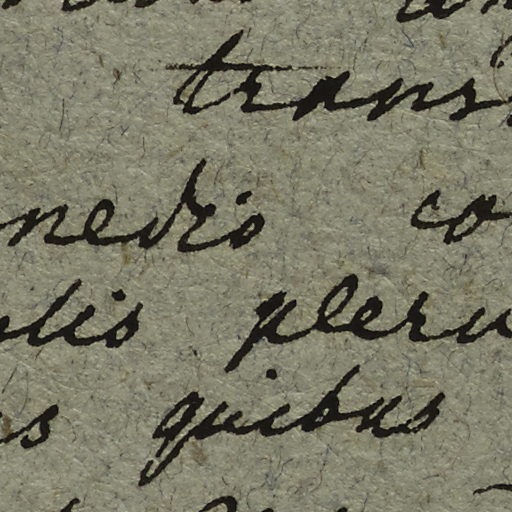 trans
nedis co
lis pleru
s quibus